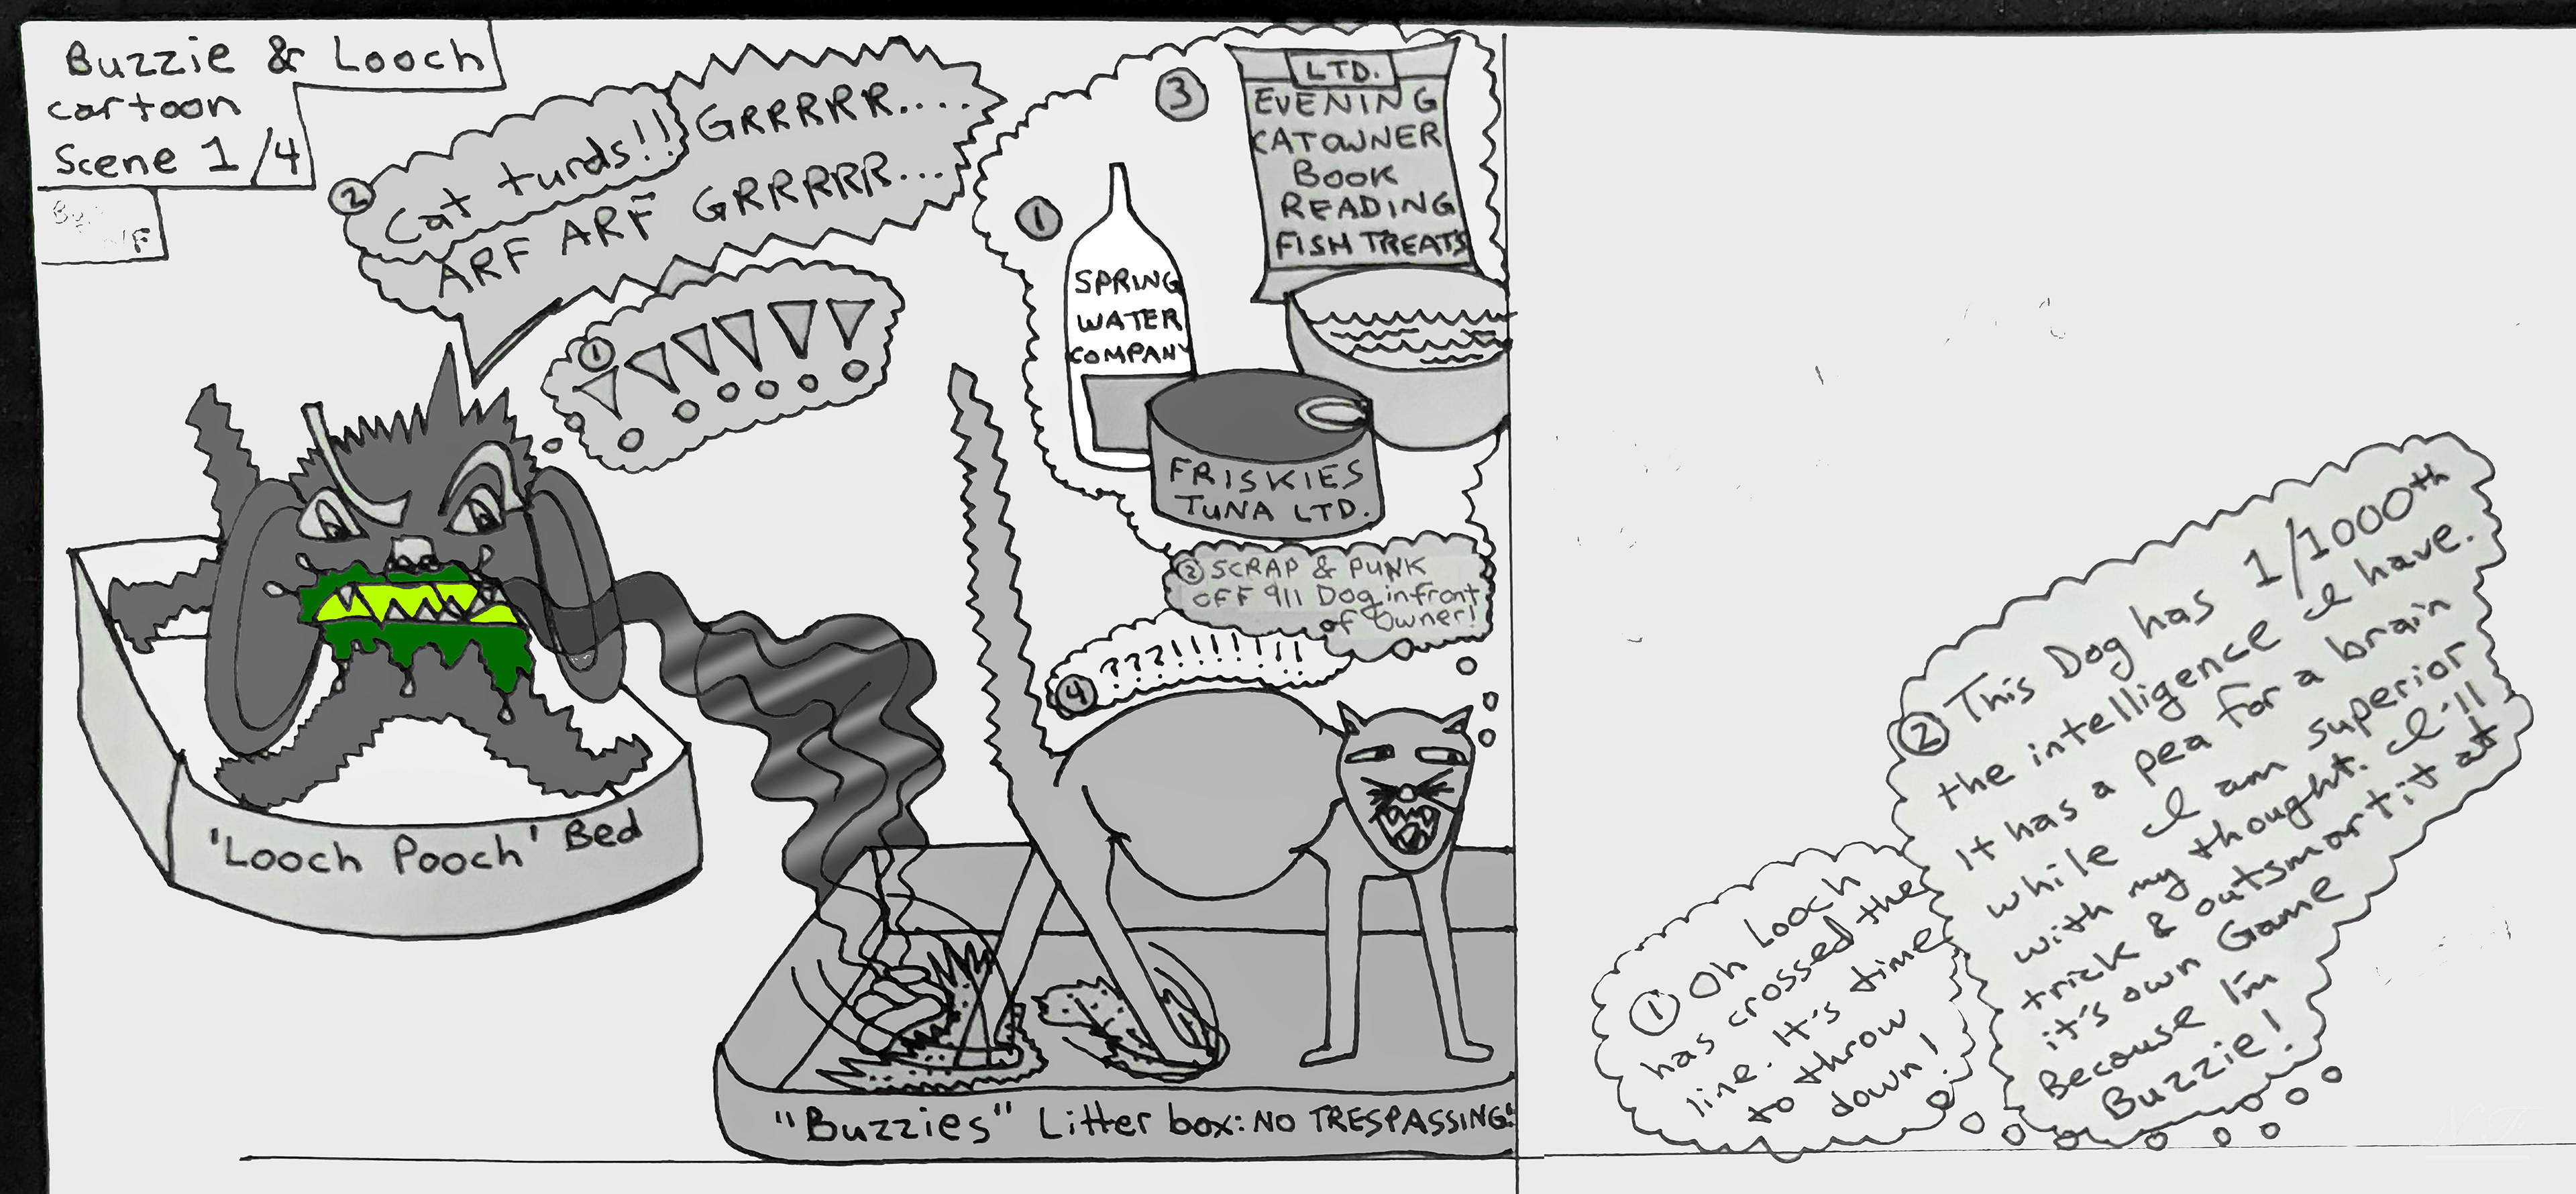 Buzzie & Looch
cartoon
Scene 1/4
② Cat turds!! GRRRRR....
ARF ARF GRRRRR...
①
③
LTD.
EVENING
CATOWNER
BOOK
READING
FISH TREATS
①
SPRING
WATER
COMPANY
FRISKIES
TUNA LTD.
② SCRAP & PUNK
OFF 911 Dog infront
of Owner!
④ ???!!!!!!!
'Looch Pooch' Bed
"Buzzies" Litter box: NO TRESPASSING!
① Oh Looch
has crossed the
line. It's time
to throw
down!
② This Dog has 1/1000th
the intelligence I have.
It has a pea for a brain
while I am superior
with my thought. I'll
trick & outsmart it at
it's own Game
Because I'm
Buzzie!